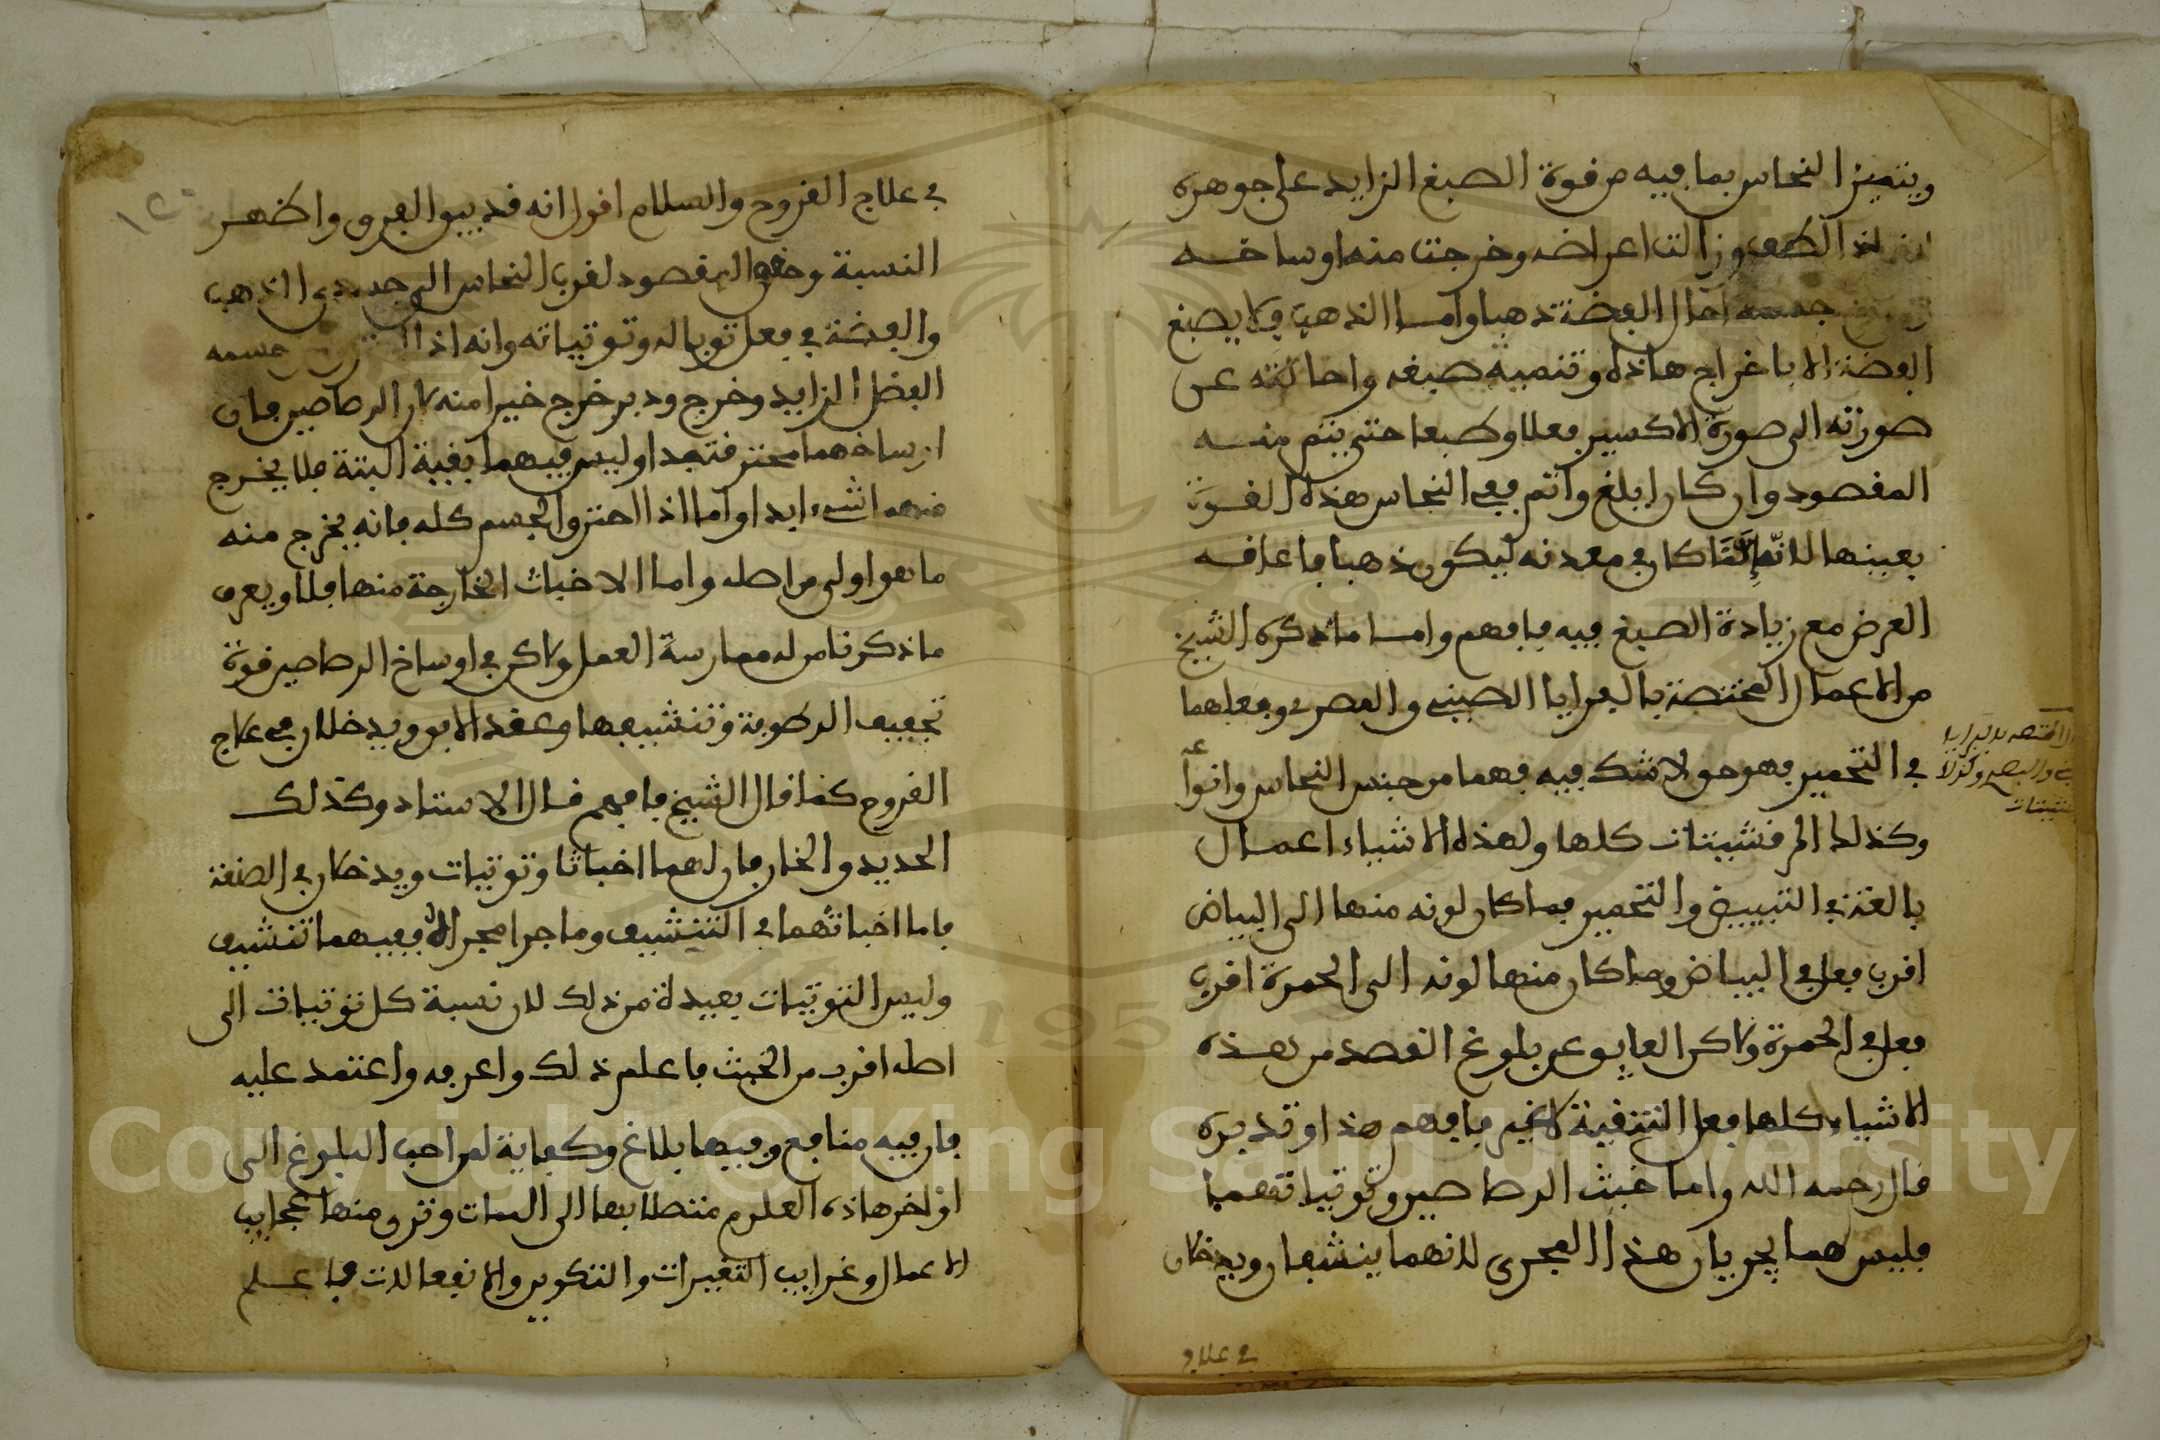 ويتميز النحاس بما فيه من قوة الصبغ الزايد على جوهره
الطبع وزالت اعراضه وخرجت منه اوساخه
جسمه احال الفضة ذهبا واما الذهب فلا يصبغ
الفضة الا باخراج هاذه وتنمية صبغه واحالته عن
صورته الى صورة الاكسير فعلا وطبعا حتى يتم منه
المقصود وان كان ابلغ واتم ففي النحاس هذه القوة
بعينها لانه انما كان في معدنه ليكون ذهبا فاعاقه
العرض مع زيادة الصبغ فيه فافهم واما ما ذكره الشيخ
من الاعمال المختصة بالمرايا الصيني والمصري وفعلهما
في التحمير فهو حق لا شك فيه فهما من جنس النحاس وانواعه
وكذلك المرقشيتات كلها ولهذه الاشياء اعمال
بالغة في التبييض والتحمير فما كان لونه منها الى البياض
اقرب فعل في البياض وما كان منها لونه الى الحمرة اقرب
فعل في الحمرة ولاكن العايق عن بلوغ القصد من هذه
الاشياء كلها فعل التنقية لا غير فافهم هذا وتدبره
قال رحمه الله واما خبث الرصاصين وتوتياتهما
فليس هما يجريان هذا المجرى لانهما ينشفان ويدخلان
في علاج
في علاج القروح والسلام اقول انه قد بين الفرق واظهر
النسبة وحقق المقصود لقرب النحاس الى جسدي الذهب
والفضة في فعل توباله وتوتياته وانه اذا جسمه
الفضل الزايد وخرج ودبر خرج خيرا منه كان الرصاصين فان
اوساخهما محترقة جدا وليس فيهما بقية البتة فلا يخرج
منهما شيء ابدا واما اذا احترق الجسم كله فانه يخرج منه
ما هو اولى من اصله واما الاخباث الخارجة منها فلا ويعرف
ما ذكرنا من له ممارسة العمل ولاكن في اوساخ الرصاصين قوة
تجفيف الرطوبة وتنشيفها وعقد الابق ويدخلان في علاج
القروح كما قال الشيخ فافهم قال الاستاد وكذلك
الحديد والخار فان لهما اخباثا وتوتيات ويدخلان في الصنعة
فاما اخباثهما في التنشيف وما جرا مجراه ففيهما تنشيف
وليس التوتيات بعيدة من ذلك لان نسبة كل توتيات الى
اصله اقرب من الخبث فاعلم ذلك واعرفه واعتمد عليه
فان فيه منافع وفيها بلاغ وكفاية لمن احب البلوغ الى
اواخر هاذه العلوم متطلبها الى الممات وترو منها عجايب
الاعمال وغرايب التغيرات والتكوين والانفعالات فاعلم